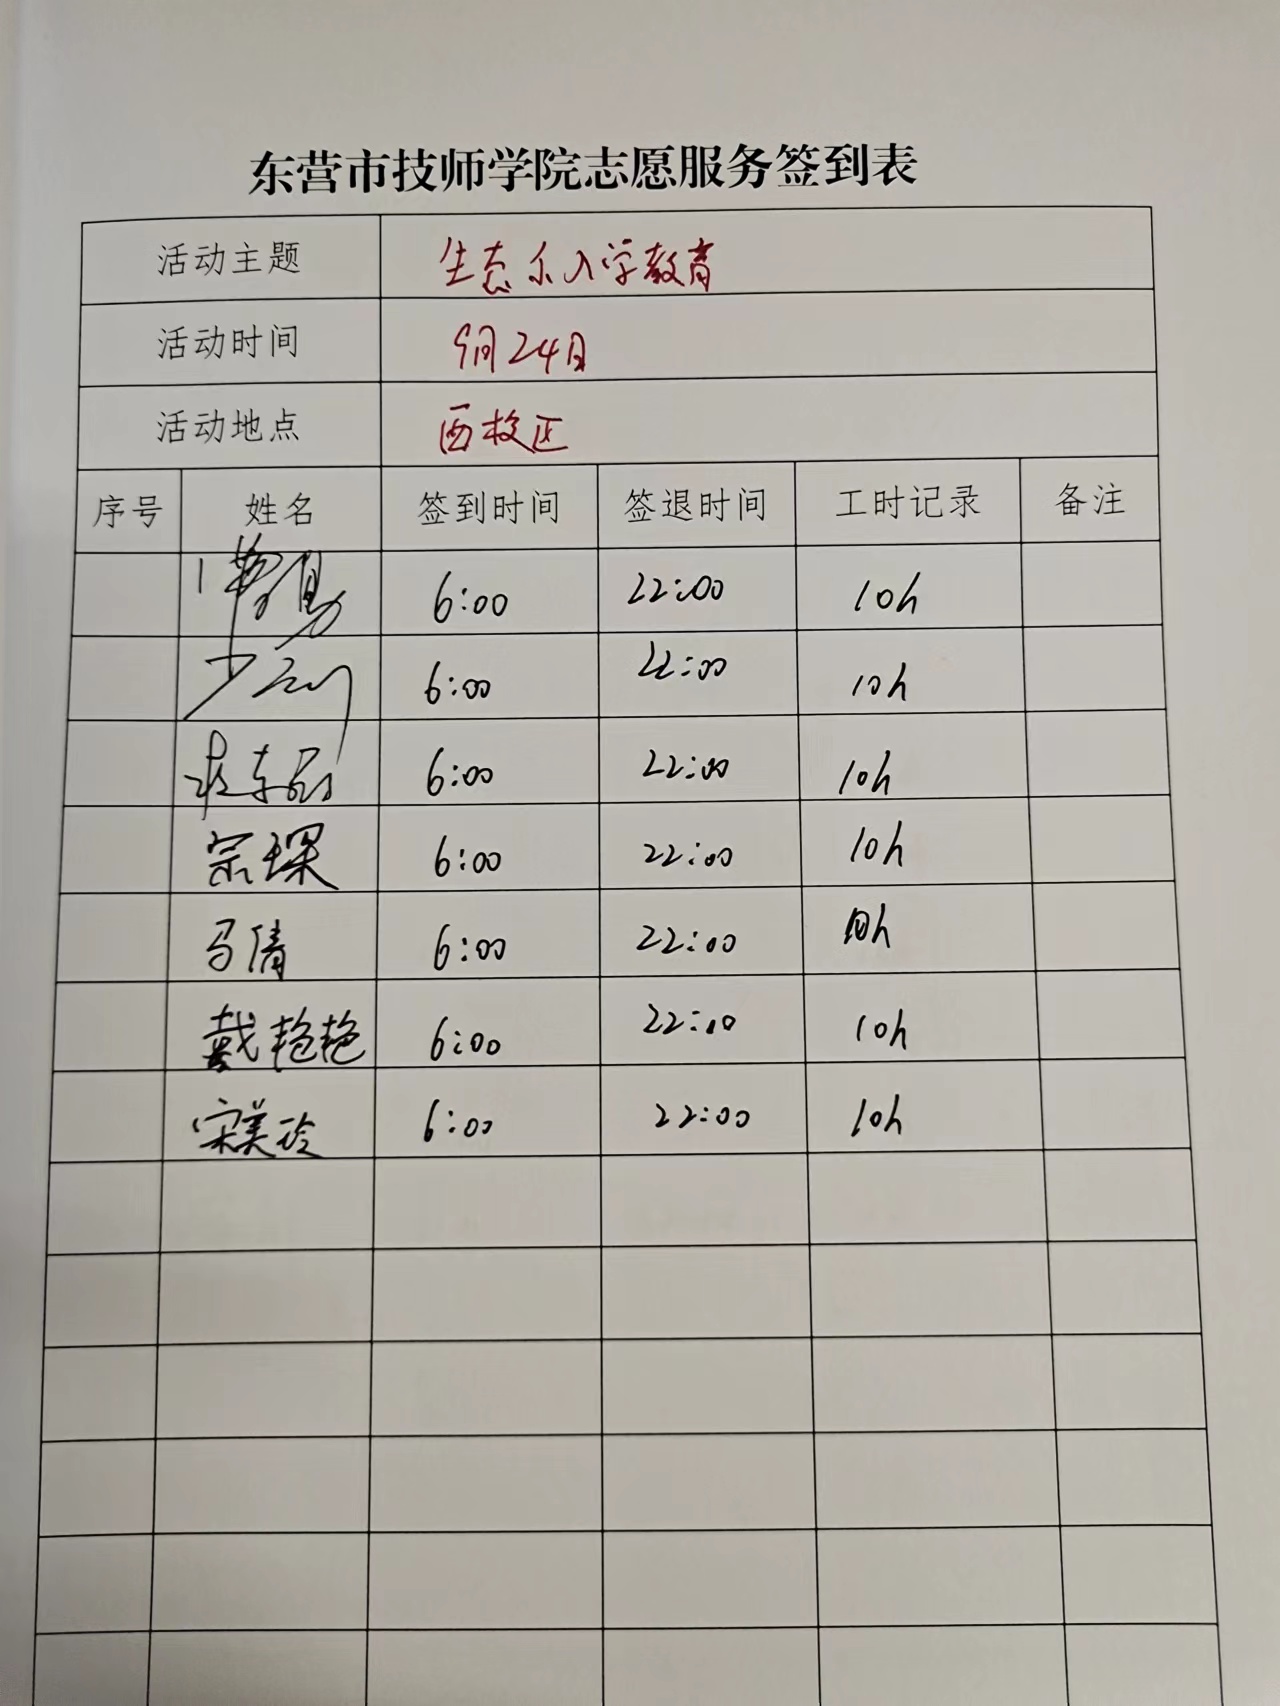 东营市技师学院志愿服务签到表
活动主题 生态系入学教育
活动时间 9月24日
活动地点 西校区
序号 姓名 签到时间 签退时间 工时记录 备注
6:00 22:00 10h
6:00 22:00 10h
6:00 22:00 10h
宗琛 6:00 22:00 10h
马倩 6:00 22:00 10h
戴艳艳 6:00 22:00 10h
宋美玲 6:00 22:00 10h